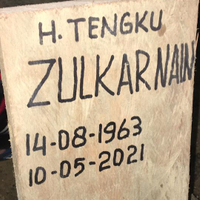 H. TENGKU
ZULKARNAIN
14-08-1963
10-05-2021